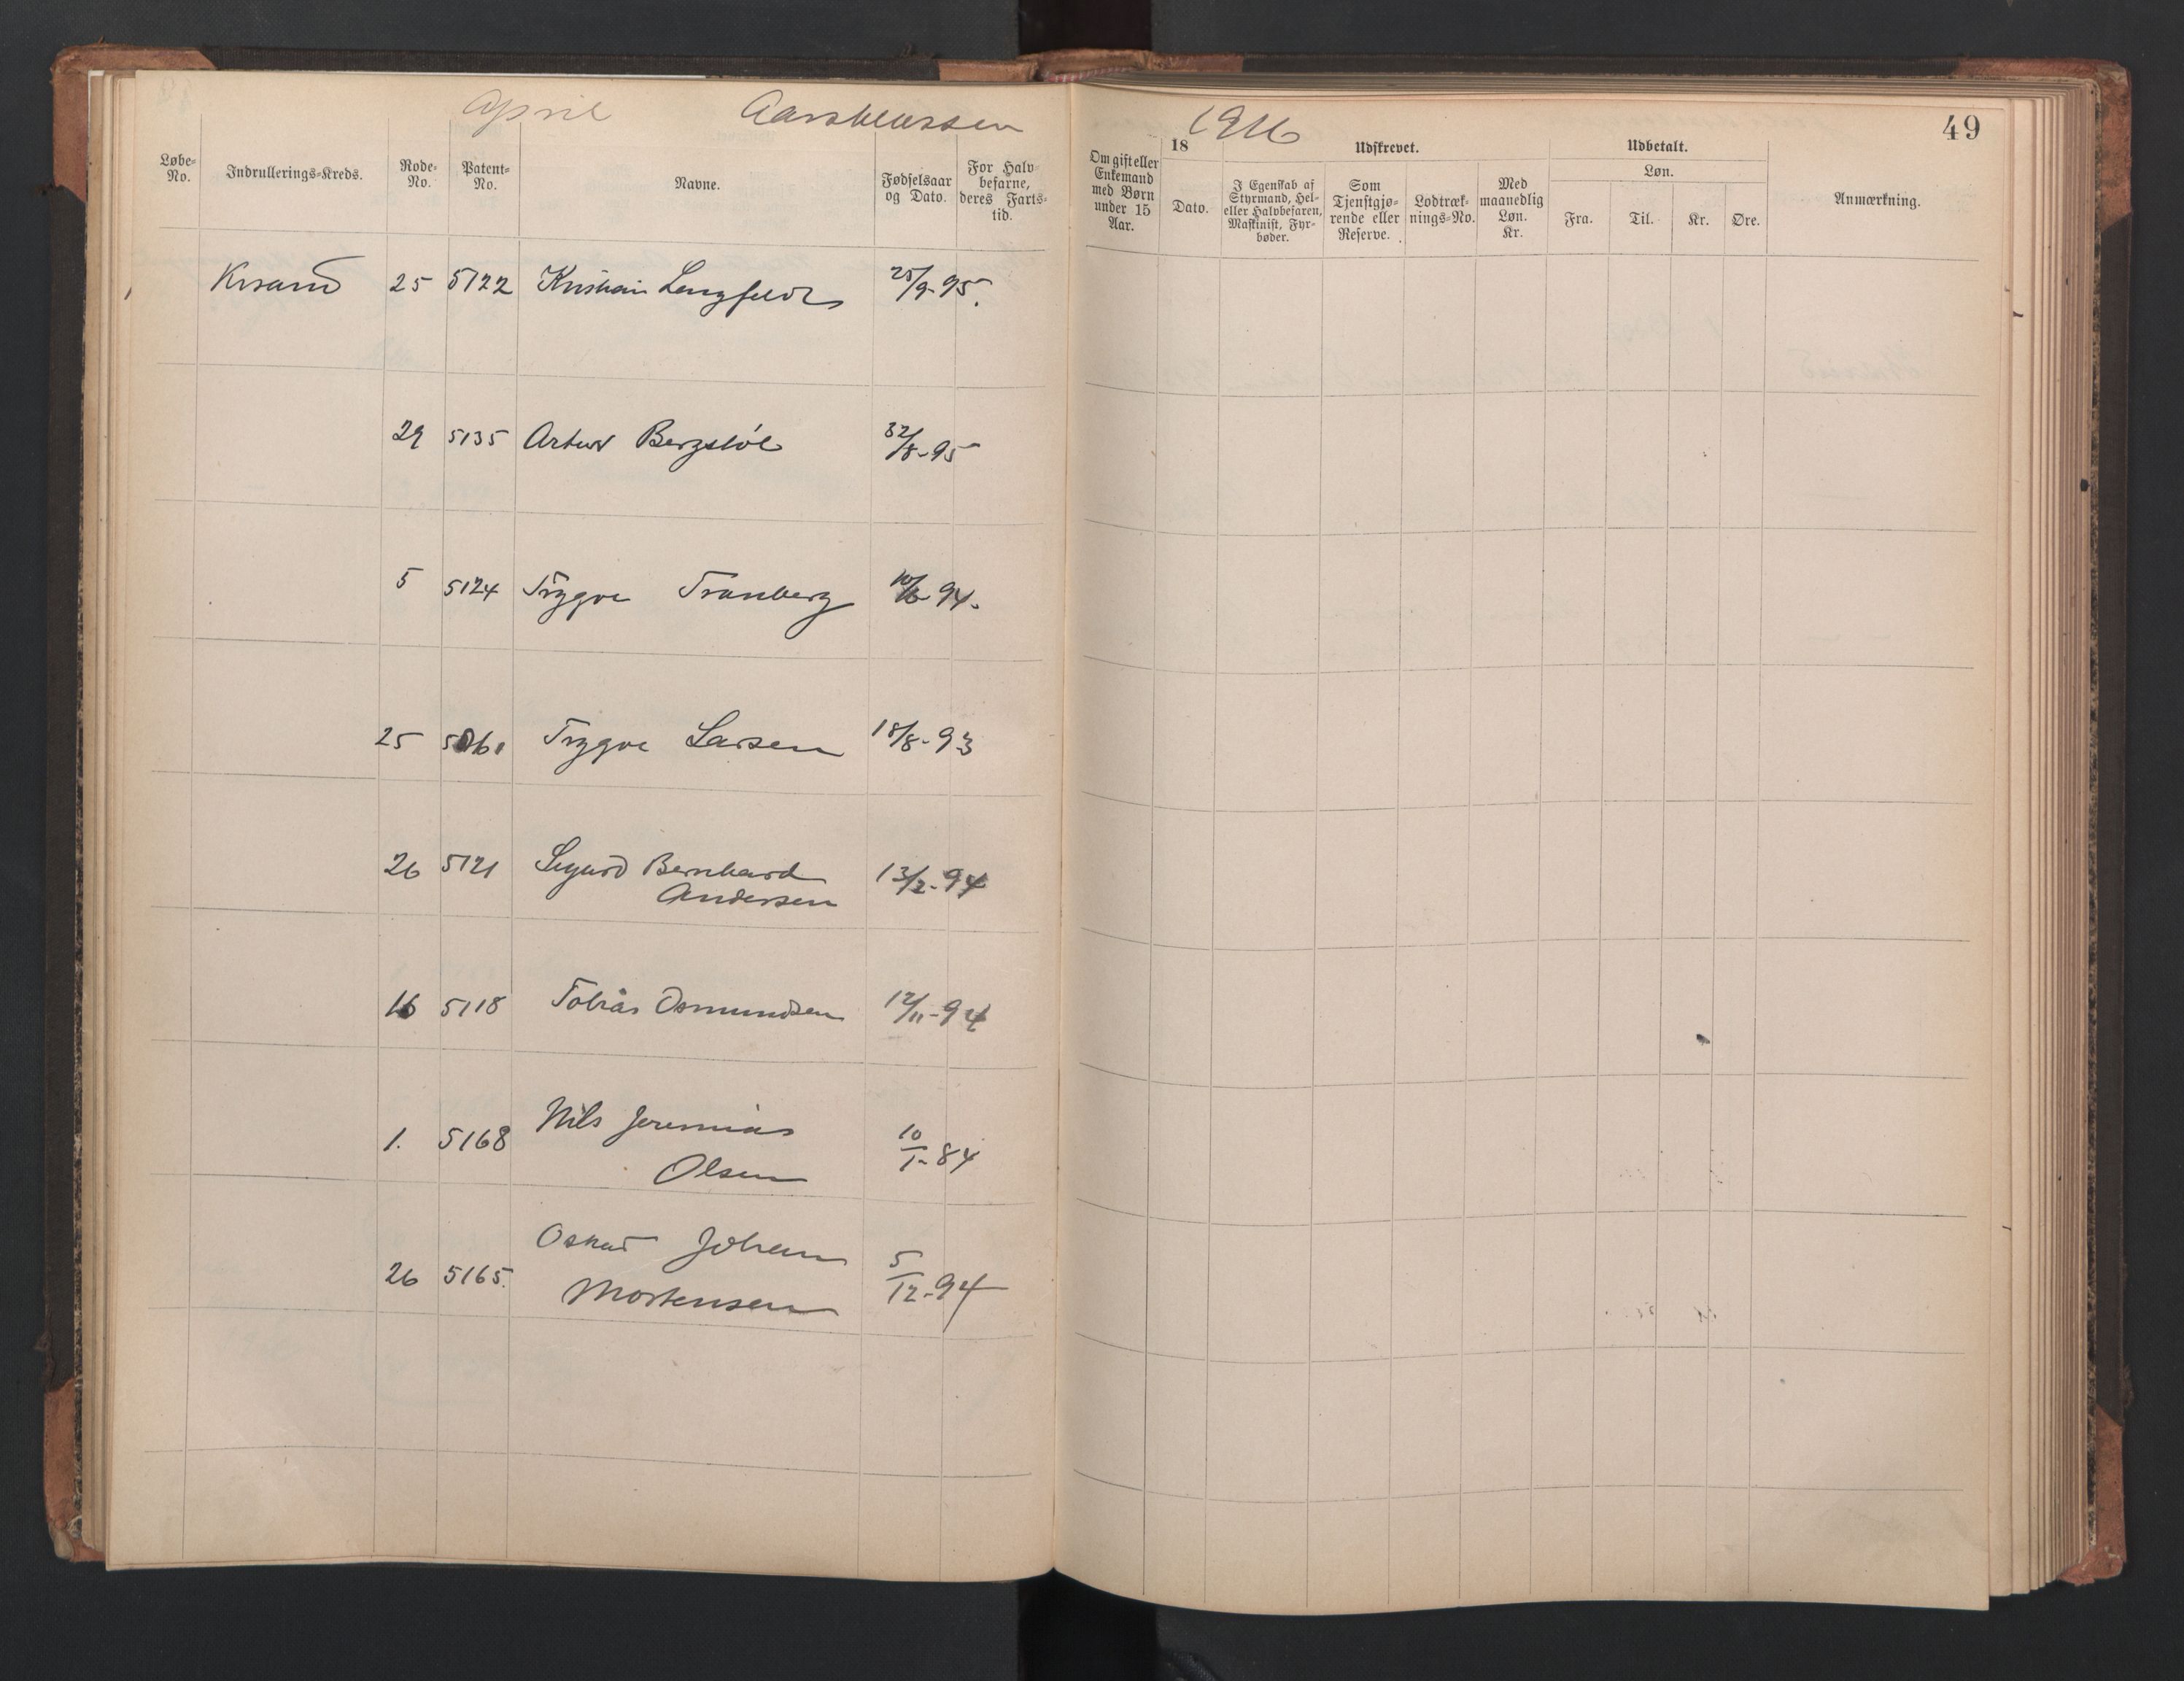 April Aarsklassen 1916
49
Løbe-No. Indrullerings-Kreds. Rode-No. Patent-No. Navne. Fødselsaar og Dato. For Halvbefarne, deres Fartstid.
Om gift eller Enkemand med Børn under 15 Aar. 18 Dato. Udskrevet. I Egenskab af Styrmand, Hel- eller Halvbefaren, Maskinist, Fyrbøder. Som Tjenstgjørende eller Reserve. Lodtræknings-No. Med maanedlig Løn. Kr. Udbetalt. Løn. Fra. Til. Kr. Øre. Anmærkning.
Krsand 25 5122 Kristian Lengfeldt 25/9-95.
29 5135 Artur Bergstøl /8-95
5 5124 Trygve Tranberg 10/6-94.
25 5061 Trygve Larsen 18/8-93
26 5121 Sigurd Bernhard
Andersen 13/2-94
16 5118 Tobias Osmundsen 12/11-94
1. 5168 Nils Jeremias
Olsen 10/1-84
26 5165. Oskar Johan
Mortensen 5/12-94